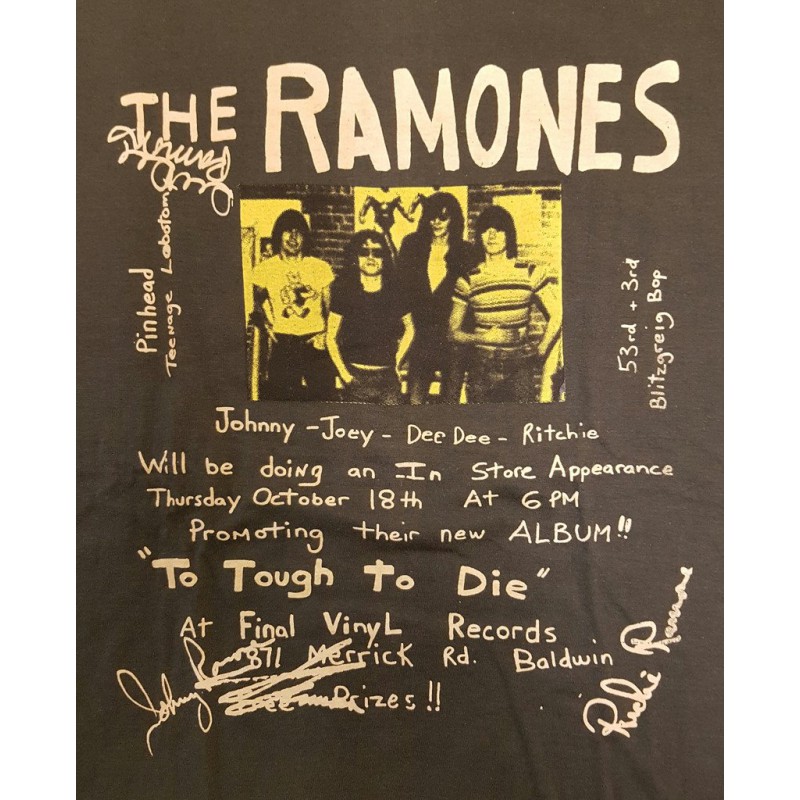 THE RAMONES
Dee Dee Ramone
Pinhead
Teenage Lobotomy
53rd + 3rd
Blitzgreig Bop
Johnny - Joey - Dee Dee - Ritchie
Will be doing an In Store Appearance
Thursday October 18th At 6 PM
Promoting their new ALBUM!!
"To Tough To Die"
At Final Vinyl Records
871 Merrick Rd. Baldwin
Prizes!!
Johnny Ramone
Richie Ramone